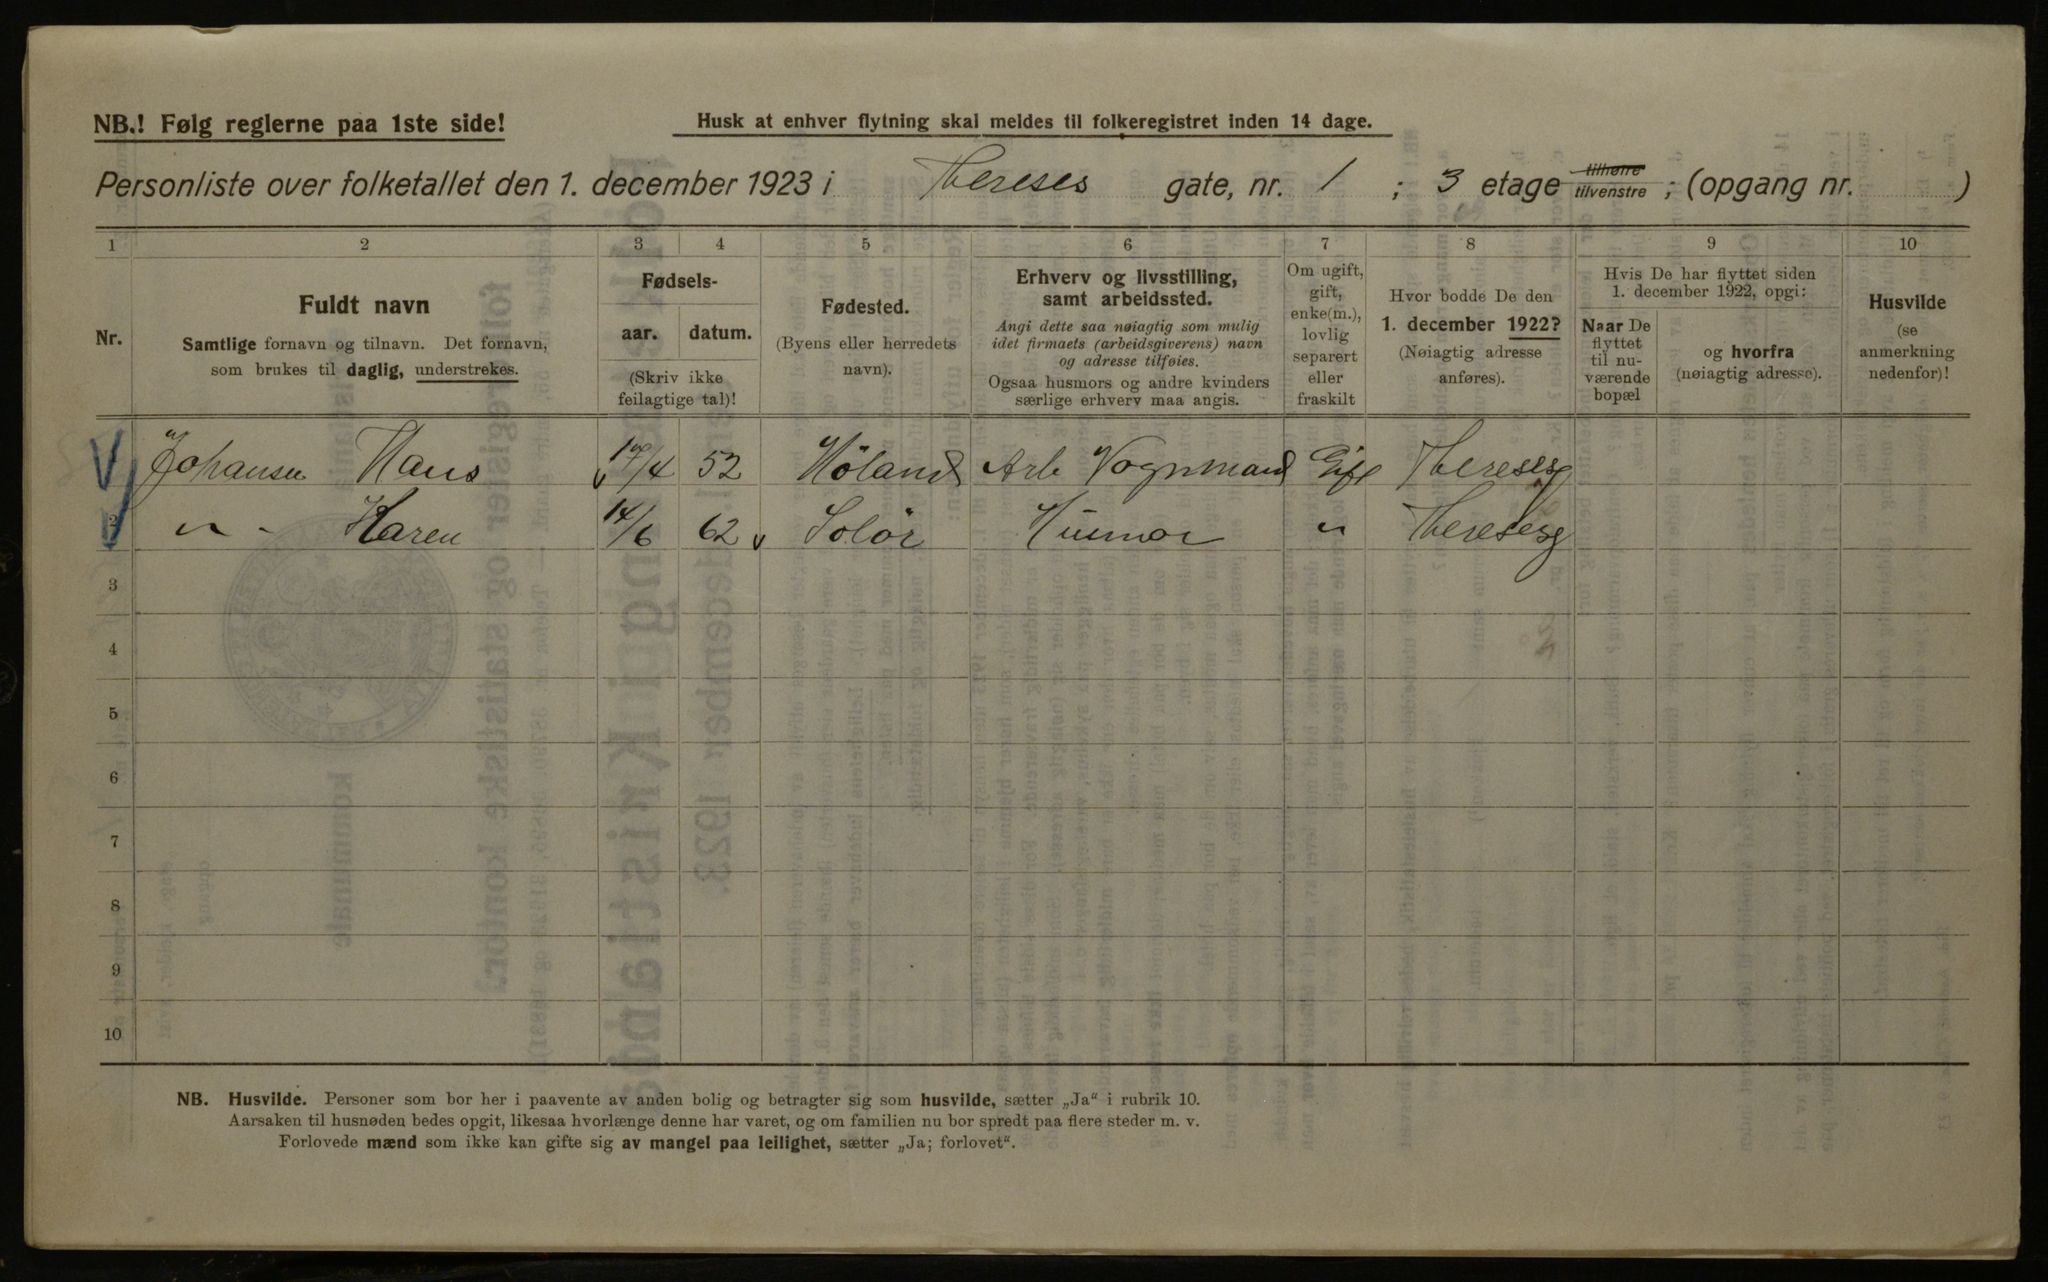 NB.! Følg reglerne paa 1ste side!
Husk at enhver flytning skal meldes til folkeregistret inden 14 dage.
Personliste over folketallet den 1. december 1923 i Thereses gate, nr. 1 ; 3 etage tilhøire tilvenstre ; (opgang nr. )
1 2 3 4 5 6 7 8 9 10
Nr.
Fuldt navn
Samtlige fornavn og tilnavn. Det fornavn,
som brukes til daglig, understrekes.
Fødsels-
aar. datum.
(Skriv ikke
feilagtige tal)!
Fødested.
(Byens eller herredets
navn).
Erhverv og livsstilling,
samt arbeidssted.
Angi dette saa nøiagtig som mulig
idet firmaets (arbeidsgiverens) navn
og adresse tilføies.
Ogsaa husmors og andre kvinders
særlige erhverv maa angis.
Om ugift,
gift,
enke(m.),
lovlig
separert
eller
fraskilt
Hvor bodde De den
1. december 1922?
(Nøiagtig adresse
anføres).
Hvis De har flyttet siden
1. december 1922, opgi:
Naar De
flyttet
til nu-
værende
bopæl
og hvorfra
(nøiagtig adresse).
Husvilde
(se
anmerkning
nedenfor)!
Johansen Hans 14/4 52 Höland Arb Vognmand Gift Theresesg
2 " - Karen 14/6 62 Solör Husmor " Theresesg
3
4
5
6
7
8
9
10
NB. Husvilde. Personer som bor her i paavente av anden bolig og betragter sig som husvilde, sætter „Ja“ i rubrik 10.
Aarsaken til husnøden bedes opgit, likesaa hvorlænge denne har varet, og om familien nu bor spredt paa flere steder m. v.
Forlovede mænd som ikke kan gifte sig av mangel paa leilighet, sætter „Ja; forlovet“.